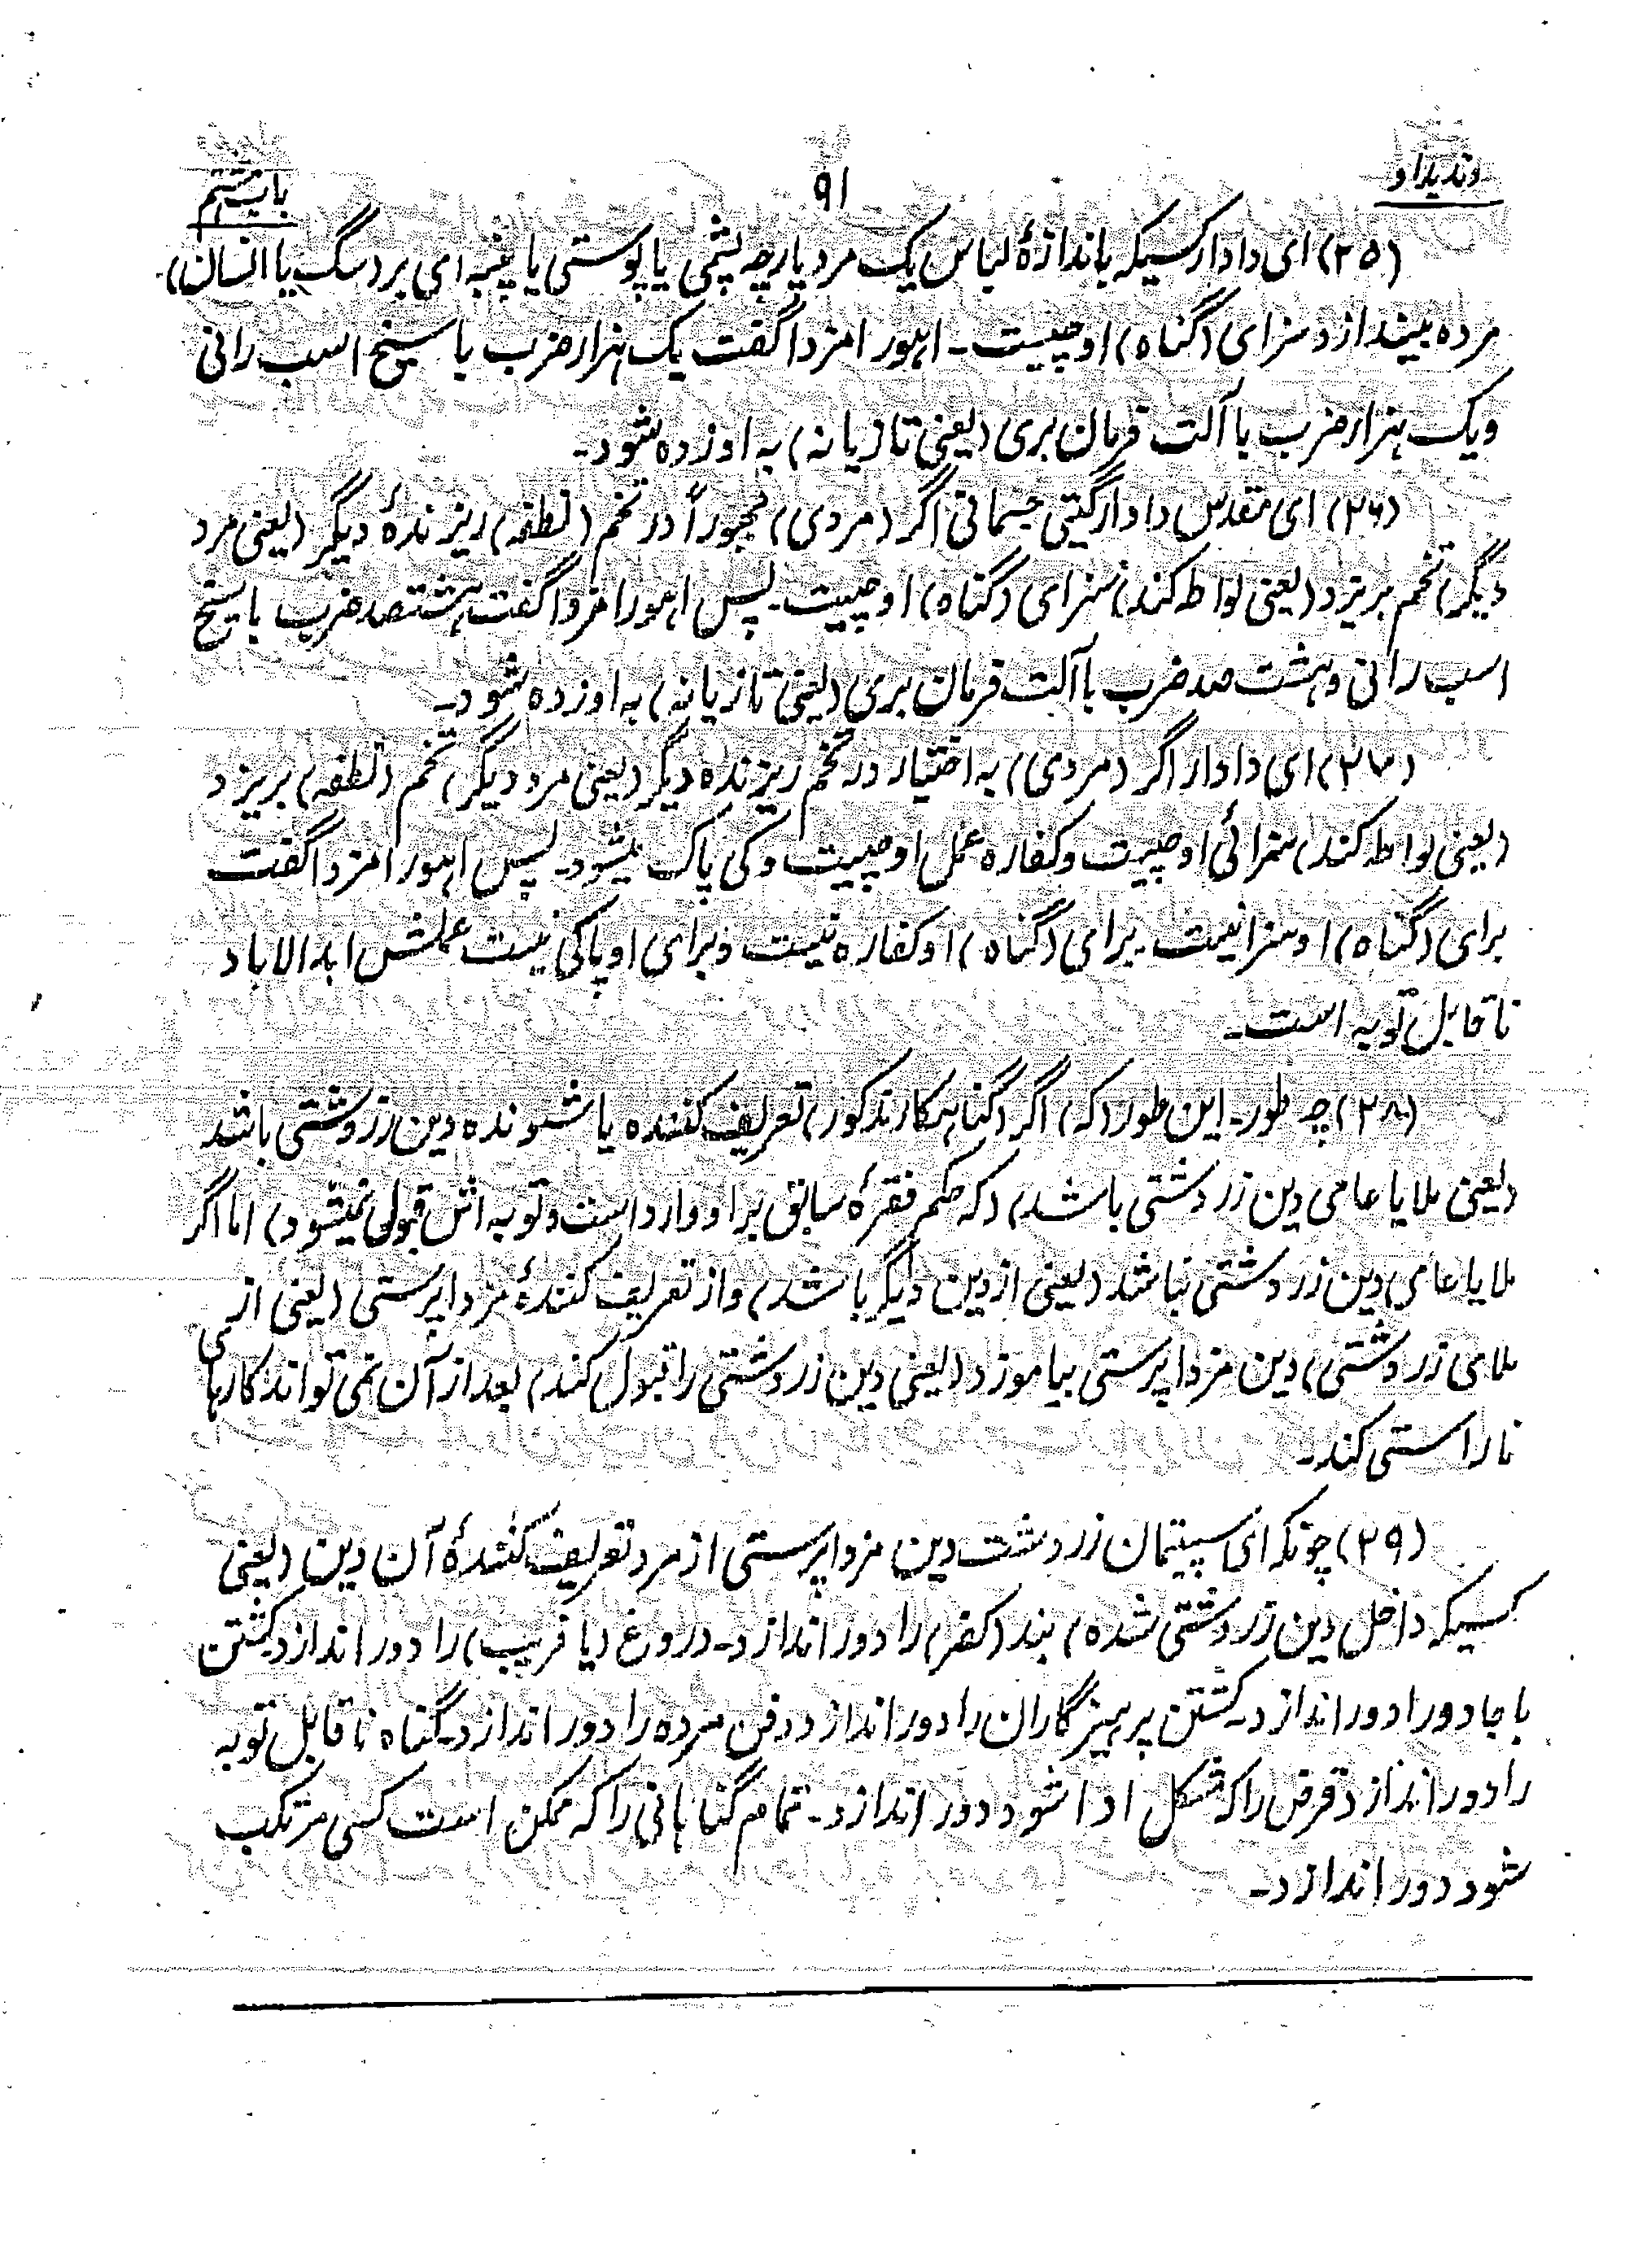 وندیداد
۹۱
باب هشتم
(۲۵) ای دادار کسیکه باندازهٔ لباس یک مرد پارچه پشمی یا پوستی یا پنبه ای بر (سگ یا انسان)
مرده بیندازد سزای (گناه) او چیست ـ اهورامزدا گفت یک هزار ضرب با سیخ اسب رانی
و یک هزار ضرب با آلت فرمان بری (یعنی تازیانه) به او زده شود ـ
(۲۶) ای مقدس دادار گیتی جسمانی اگر (مردی) مجبوراً در تخم (نطفه) ریزندهٔ دیگر (یعنی مرد
دیگر) تخم بریزد (یعنی لواطه کند) سزای (گناه) او چیست ـ پس اهورامزدا گفت هشتصد ضرب با سیخ
اسب رانی و هشت صد ضرب با آلت فرمان بری (یعنی تازیانه) به او زده شود ـ
(۲۷) ای دادار اگر (مردی) به اختیار در تخم ریزنده دیگر (یعنی مرد دیگر) تخم (نطفه) بریزد
(یعنی لواطه کند) سزائی او چیست و کفاره عمل او چیست و کی پاک میشود ـ پس اهورامزدا گفت
برای (گناه) او سزا نیست ـ برای (گناه) او کفاره نیست و برای او پاکی نیست عملش ابدالاباد
ناقابل توبه است ـ
(۲۸) چه طور ـ این طور (که) اگر (گناهکار مذکور) تعریف کننده یا شنونده دین زردشتی باشد
(یعنی ملا یا عامی دین زردشتی باشد) (که حکم فقرهٔ سابق بر او وارد است و توبه اش قبول نمیشود) اما اگر
ملا یا عامی دین زردشتی نباشد (یعنی از دین دیگر باشد) و از تعریف کنندهٔ مزداپرستی (یعنی از
ملای زردشتی) دین مزداپرستی بیاموزد (یعنی دین زردشتی را قبول کند) بعد از آن نمی تواند کارهای
ناراستی کند ـ
(۲۹) چونکه ای سپیتمان زردشت دین مزداپرستی از مرد تعریف کنندهٔ آن دین (یعنی
کسیکه داخل دین زردشتی شده) بند (کفر) را دور اندازد ـ دروغ (یا فریب) را دور اندازد ـ کشتن
با جادو را دور اندازد ـ کشتن پرهیزگاران را دور اندازد دفن مرده را دور اندازد ـ گناه ناقابل توبه
را دور اندازد قرض را که مشکل ادا شود دور اندازد ـ تمام گناهانی را که ممکن است کسی مرتکب
شود دور اندازد ـ